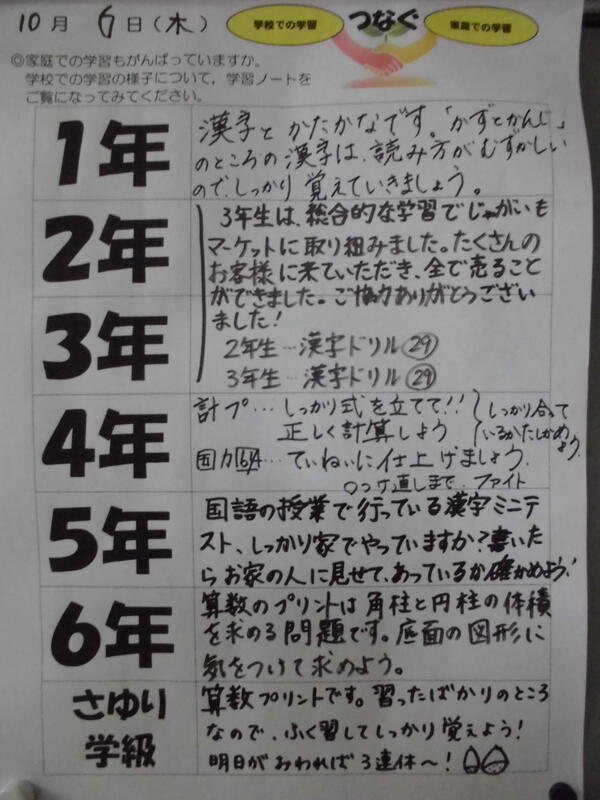 10月 6日(木)
学校での学習 つなぐ 家庭での学習
◎家庭での学習もがんばっていますか。
学校での学習の様子について,学習ノートを
ご覧になってみてください。
1年
漢字とかたかなです。「かずとかんじ」
のところの漢字は、読み方がむずかしい
ので、しっかり覚えていきましょう。
2年
3年
3年生は、総合的な学習でじゃがいも
マーケットに取り組みました。たくさんの
お客様に来ていただき、全て売ること
ができました。ご協力ありがとうござい
ました!
2年生…漢字ドリル㉙
3年生…漢字ドリル㉙
4年
計プ…しっかり式を立てて!!
正しく計算しよう
しっかり合って
いるかたしかめ
よう。
国力64…ていねいに仕上げましょう。
○つけ直しまで、ファイト
5年
国語の授業で行っている漢字ミニテ
スト、しっかり家でやっていますか?書いた
らお家の人に見せて、あっているか確かめよう!
6年
算数のプリントは角柱と円柱の体積
を求める問題です。底面の図形に
気をつけて求めよう。
さゆり
学級
算数プリントです。習ったばかりのところ
なので、ふく習してしっかり覚えよう!
明日がおわれば3連休〜!